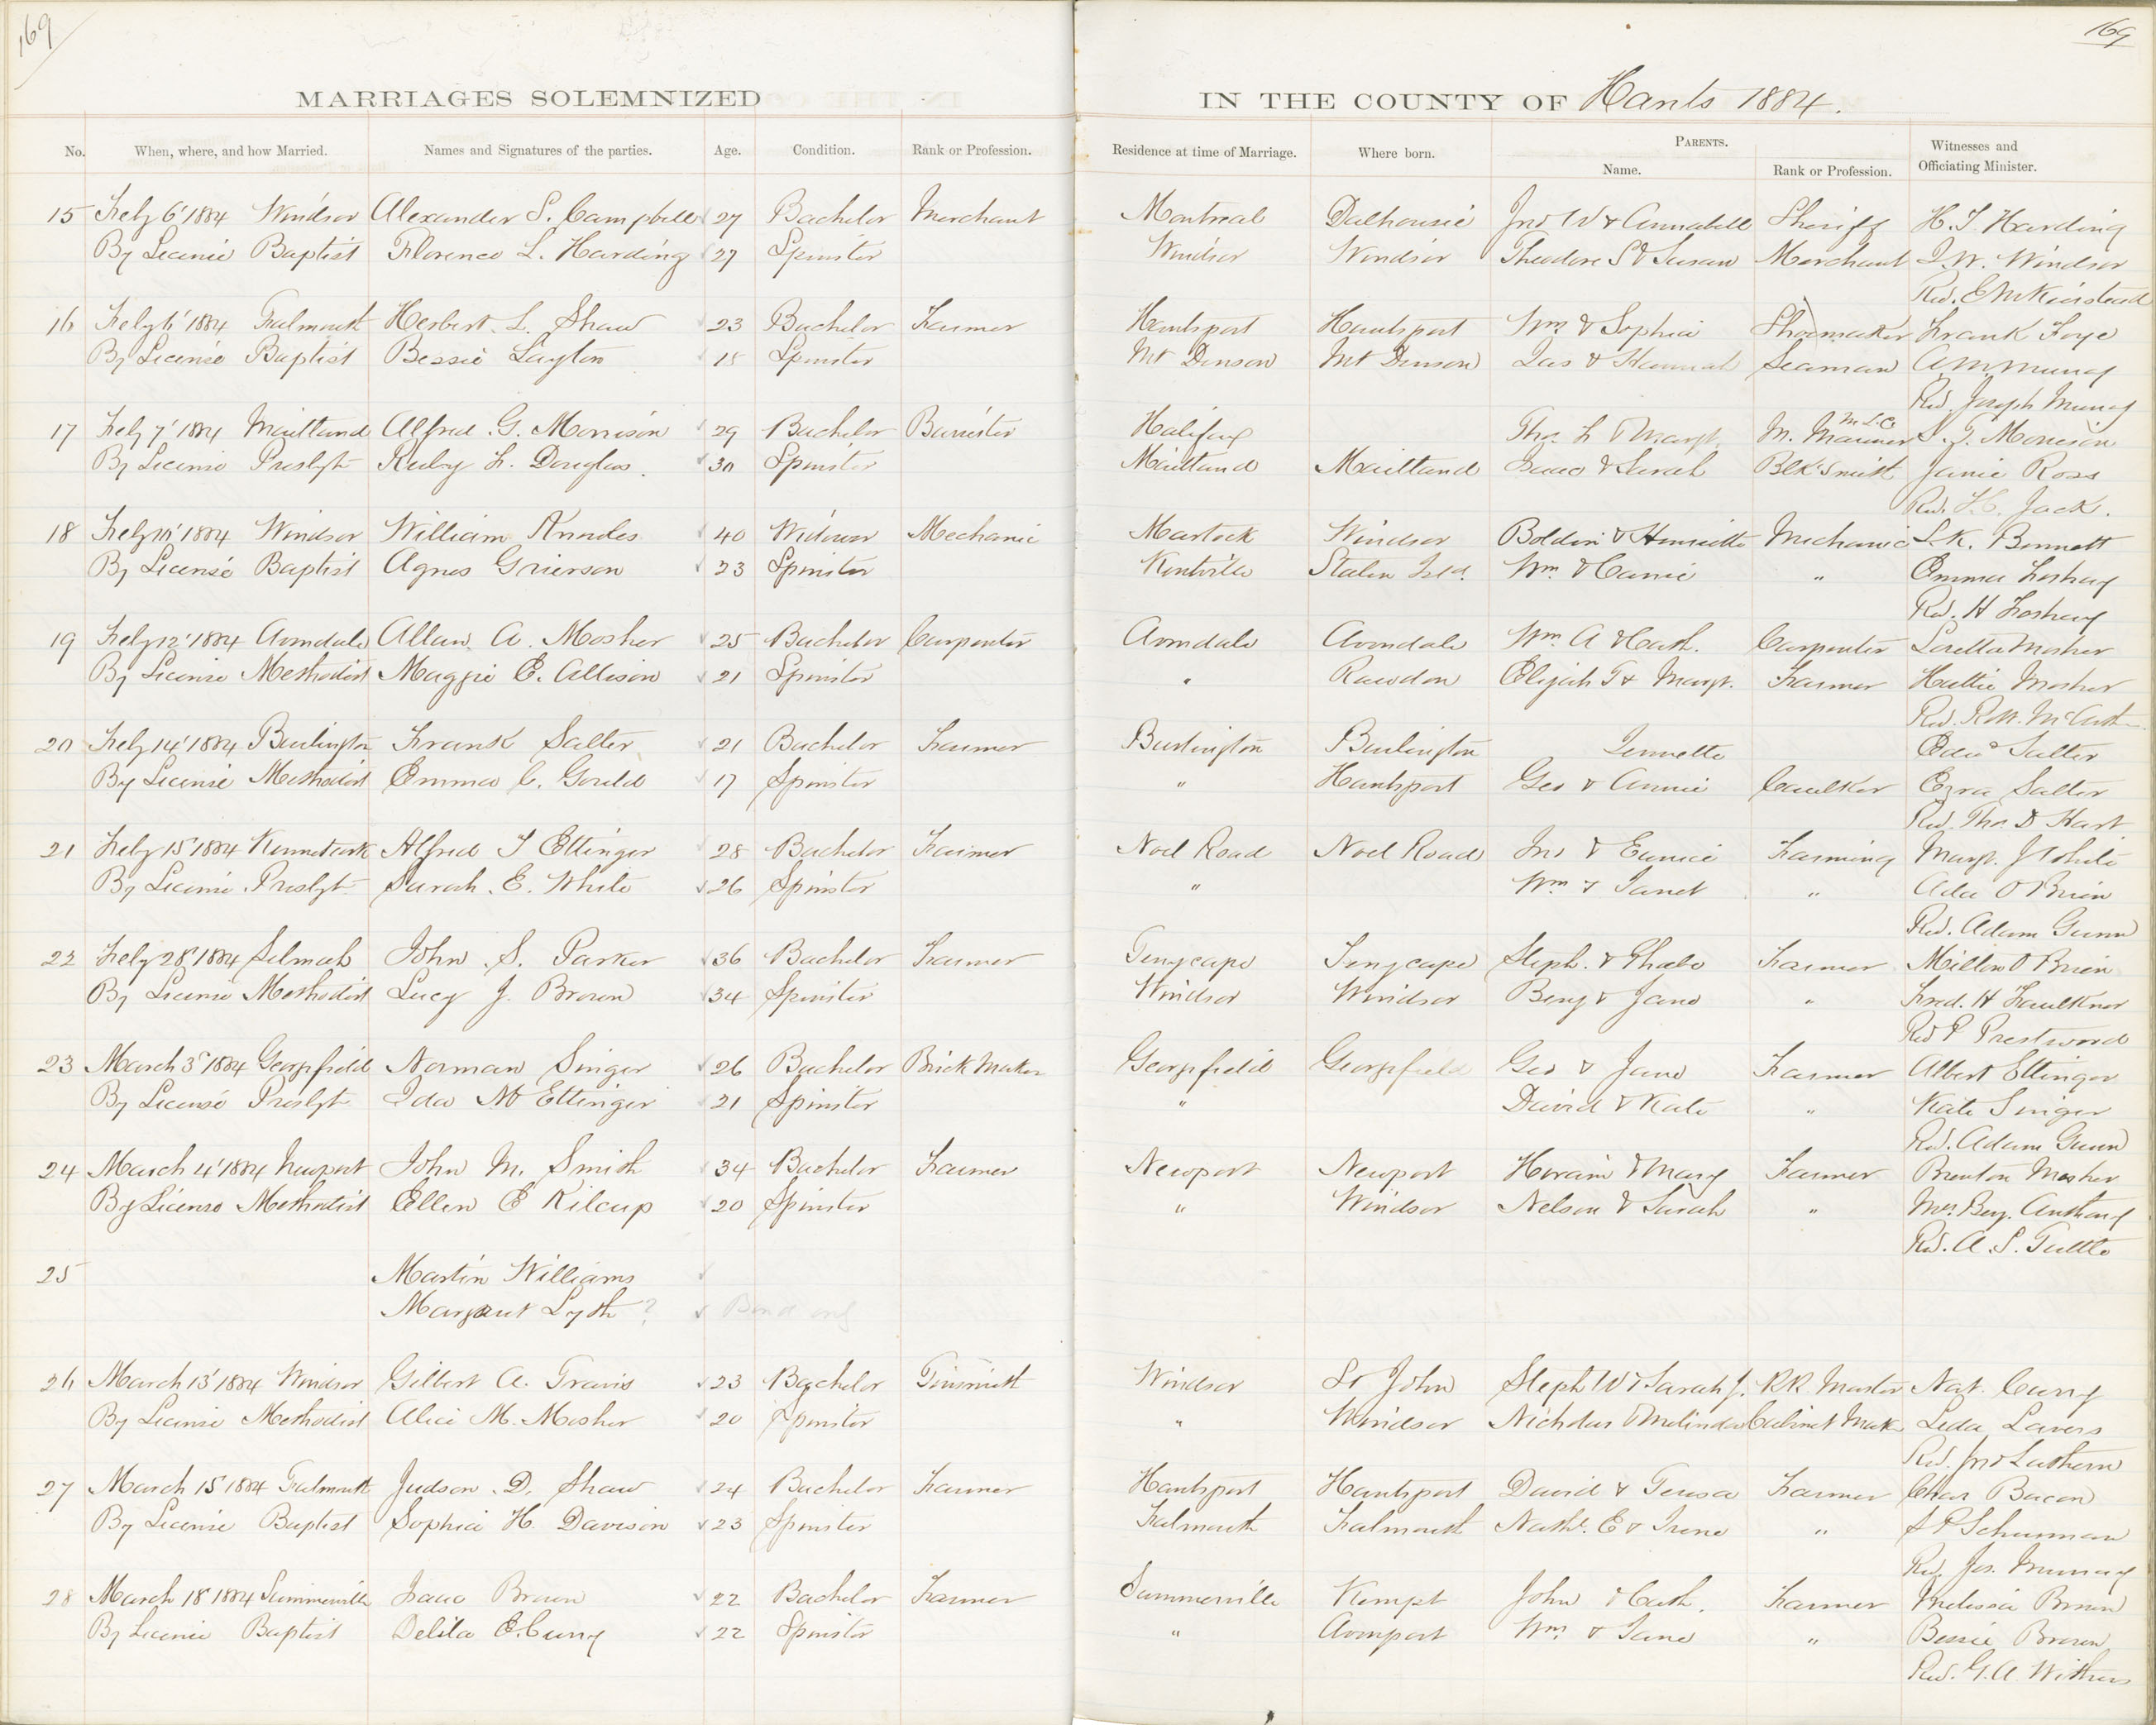 169
169
MARRIAGES SOLEMNIZED IN THE COUNTY OF Hants 1884.
No. When, where, and how Married. Names and Signatures of the parties. Age. Condition. Rank or Profession. Residence at time of Marriage. Where born. PARENTS. Name. Rank or Profession. Witnesses and Officiating Minister.
15 Feby 6' 1884 Windsor Alexander S. Campbell 27 Bachelor Merchant Montreal Dalhousie Jno W & Annabell Sheriff H. T. Harding
By License Baptist Florence L. Harding 27 Spinster Windsor Windsor Theodore S & Susan Merchant J. W. Windsor
Rev. E M Keirstead
16 Feby 6' 1884 Falmouth Herbert L. Shaw 23 Bachelor Farmer Hantsport Hantsport Wm & Sophia Shoemaker Frank Foye
By License Baptist Bessie Layton 18 Spinster Mt Denson Mt Denson Jas & Hannah Seaman A M Murray
Rev. Joseph Murray
17 Feby 7' 1884 Maitland Alfred G. Morrison 29 Bachelor Barrister Halifax Thos F & Margt. M. Mariner M.L.C. S. J. Morrison
By License Presbyt Ruby F. Douglas. 30 Spinster Maitland Maitland Isaac & Sarah Blk Smith Janie Ross
Rev. Jack.
18 1884 Windsor William Knowles 40 Widower Mechanic Martock Windsor Boldin & Henrietta Mechanic S. K. Bennett
By License Baptist Agnes Grierson 23 Spinster Kentville Staten Isld. Wm & Carrie " Emma Foshay
Rev. H Foshay
19 Feby 12' 1884 Avondale Allan A. Mosher 25 Bachelor Carpenter Avondale Avondale Wm A & Cath. Carpenter Loretta Mosher
By License Methodist Maggie E. Allison 21 Spinster " Rawdon Elijah T & Margt. Farmer Hattie Mosher
Rev.
20 Feby 14' 1884 Burlington Frank Salter 21 Bachelor Farmer Burlington Burlington Jennette Edwd Salter
By License Methodist Emma C. Gould 17 Spinster " Hantsport Geo & Annie Caulker Ezra Salter
Rev. Thos D Hart
21 Feby 15' 1884 Kennetcook Alfred T Ettinger 28 Bachelor Farmer Noel Road Noel Road Jno & Eunice Farming Margt. J White
By License Presbyt Sarah E. White 26 Spinster " Wm & Janet " Ada O'Brien
Rev. Adam Gunn
22 Feby 28' 1884 Selmah John S. Parker 36 Bachelor Farmer Tenycape Tenycape Steph. & Phebe Farmer Milton O'Brien
By License Methodist Lucy J. Brown 34 Spinster Windsor Windsor Benj & Jane " Fred. H Faulkner
Rev P Prestwood
23 March 3' 1884 Georgefield Norman Singer 26 Bachelor Brick Maker Georgefield Georgefield Geo & Jane Farmer Albert Ettinger
By License Presbyt Ida M Ettinger 21 Spinster " David & Kate " Kate Singer
Rev. Adam Gunn
24 March 4' 1884 Newport John M. Smith 34 Bachelor Farmer Newport Newport Hiram & Mary Farmer Brenton Mosher
By License Methodist Ellen E Kilcup 20 Spinster " Windsor Nelson & Sarah " Mrs. Benj. Anthony
Rev. A. S. Tuttle
25 Martin Williams
Margaret Lyth? Bond only
26 March 13' 1884 Windsor Gilbert A. Travis 23 Bachelor Tinsmith Windsor St John Steph W & Sarah J. RR. Master Nat. Curry
By License Methodist Alice M. Mosher 20 Spinster " Windsor Nicholas & Melinda Cabinet Maker Leda Lavers
Rev. Jno Lathern
27 March 15' 1884 Falmouth Judson D. Shaw 24 Bachelor Farmer Hantsport Hantsport David & Teresa Farmer Chas Bacon
By License Baptist Sophia H. Davison 23 Spinster Falmouth Falmouth Nathl. E & Irene " S P Schurman
Rev. Jos. Murray
28 March 18' 1884 Summerville Isaac Brown 22 Bachelor Farmer Summerville Kempt John & Cath. Farmer Melissa Brown
By License Baptist Delila E. Curry 22 Spinster " Avonport Wm & Jane " Bessie Brown
Rev. G. A. Withers